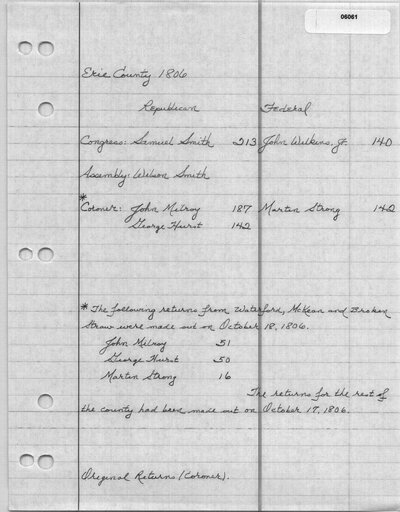 06061
Erie County 1806
Republican Federal
Congress: Samuel Smith 213 John Wilkins, Jr. 140
Assembly: Wilson Smith
*
Coroner: John Melroy 187 Martin Strong 142
George Hurst 142
* The following returns from Waterford, McKean and Broken
Straw were made out on October 18, 1806.
John Melroy 51
George Hurst 50
Martin Strong 16
The returns for the rest of
the county had been made out on October 17, 1806.
Original Returns (Coroner).